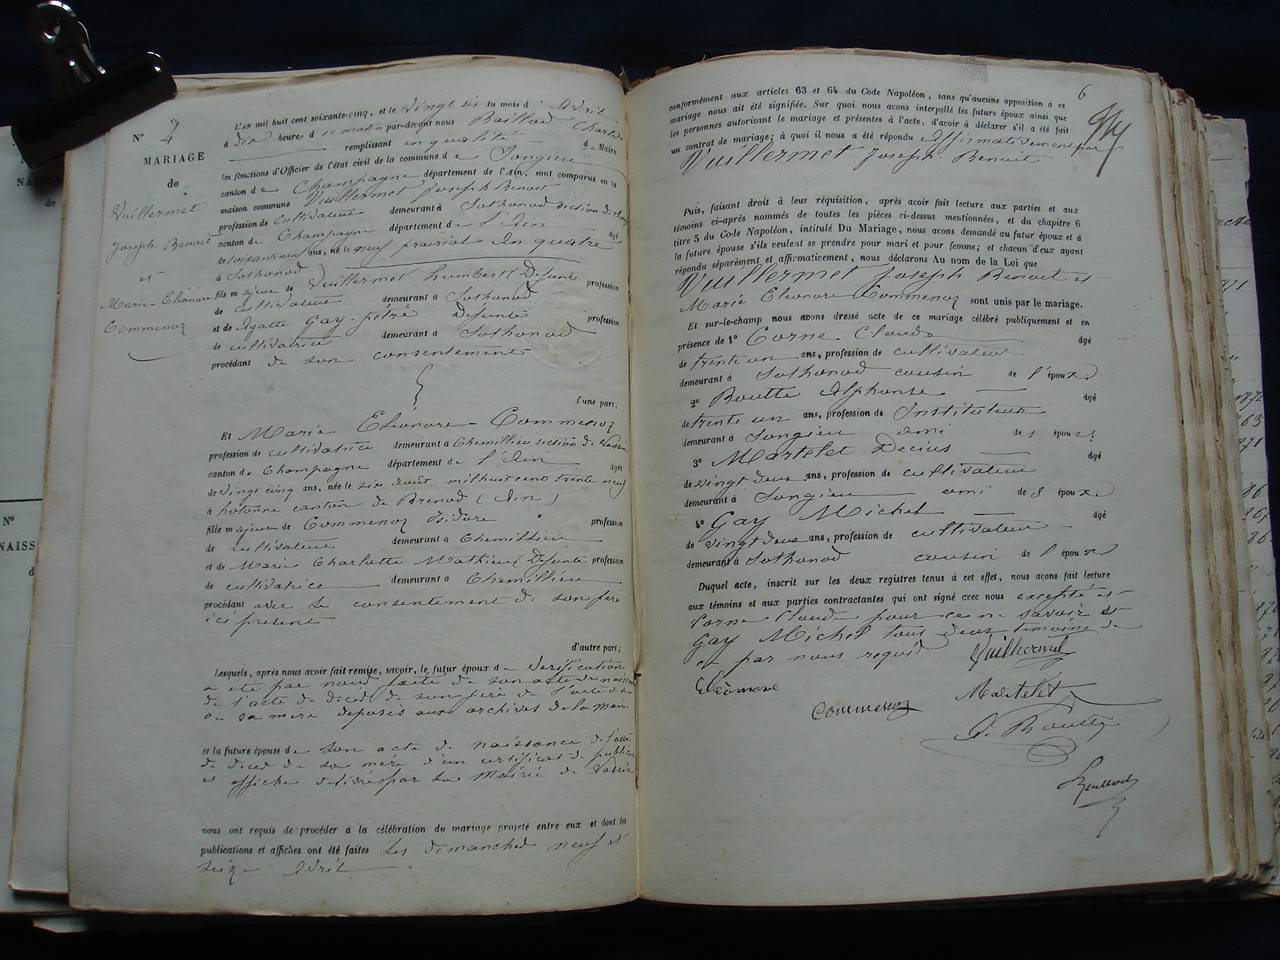 N° 7
MARIAGE
de
Vuillermet
Joseph Benoit
et
Marie-Eléonore
Commenoz
L'an mil huit cent soixante-cinq, et le Vingt six du mois d'Avril
à dix heures du matin par-devant nous Baillod Charles
remplissant en qualité de Maire
les fonctions d'Officier de l'état civil de la commune de Songieu
canton de Champagne département de l'Ain, sont comparus en la
maison commune Vuillermet Joseph Benoit
profession de cultivateur demeurant à Sothonod section de Songieu
canton de Champagne département de l'Ain âgé
de soixante ans, né le neuf prairial an quatre
à Sothonod
fils majeur de Vuillermet humbert Défunt profession
de cultivateur demeurant à Sothonod
et de Agatte Gay-pitré Défunte profession
de cultivatrice demeurant à Sothonod
procédant de son consentement
d'une part;
Et Marie Eléonore Commenoz
profession de cultivatrice demeurant à Chemillieu section de
canton de Champagne département de l'Ain âgée
de vingt cinq ans, née le six août mil huit cent trente neuf
à hotonne canton de Brenod (Ain)
fille majeure de Commenoz Isidore profession
de cultivateur demeurant à Chemillieu
et de Marie Charlotte Mathieu Défunte profession
de cultivatrice demeurant à Chemillieu
procédant avec le consentement de son père
ici présent
d'autre part;
Lesquels, après nous avoir fait remise, savoir, le futur époux de vérification
a été par nous faite de son acte de naissance
de l'acte de décès de son père de l'acte de décès
de sa mère déposés aux archives de la Mairie
et la future épouse de son acte de naissance de l'acte
de décès de sa mère d'un certificat de publication
et affiche délivrés par la Mairie de
nous ont requis de procéder à la célébration du mariage projeté entre eux et dont les
publications et affiches ont été faites les dimanches neuf et
seize Avril
6
conformément aux articles 63 et 64 du Code Napoléon, sans qu'aucune opposition à ce
mariage nous ait été signifiée. Sur quoi nous avons interpellé les futurs époux ainsi que
les personnes autorisant le mariage et présentes à l'acte, d'avoir à déclarer s'il a été fait
un contrat de mariage; à quoi il nous a été répondu affirmativement par
Vuillermet Joseph Benoit
Puis, faisant droit à leur réquisition, après avoir fait lecture aux parties et aux
témoins ci-après nommés de toutes les pièces ci-dessus mentionnées, et du chapitre 6
titre 5 du Code Napoléon, intitulé Du Mariage, nous avons demandé au futur époux et à
la future épouse s'ils veulent se prendre pour mari et pour femme; et chacun d'eux ayant
répondu séparément et affirmativement, nous déclarons Au nom de la Loi que
Vuillermet Joseph Benoit et
Marie Eléonore Commenoz sont unis par le mariage.
Et sur-le-champ nous avons dressé acte de ce mariage célébré publiquement et en
présence de 1° Corne Claude âgé
de trente un ans, profession de cultivateur
demeurant à Sothonod cousin de l'époux
2° Boutte Alphonse âgé
de trente un ans, profession de Instituteur
demeurant à Songieu ami de l'époux
3° Martelet Décius âgé
de vingt deux ans, profession de cultivateur
demeurant à Songieu ami de l'époux
4° Gay Michel âgé
de vingt deux ans, profession de cultivateur
demeurant à Sothonod cousin de l'époux
Duquel acte, inscrit sur les deux registres tenus à cet effet, nous avons fait lecture
aux témoins et aux parties contractantes qui ont signé avec nous excepté
Corne Claude pour ce ne savoir et
Gay Michel tous deux témoins de
ce par nous requis Vuillermet
Eléonore
Commenoz
Martelet
A. Boutte
Baillod